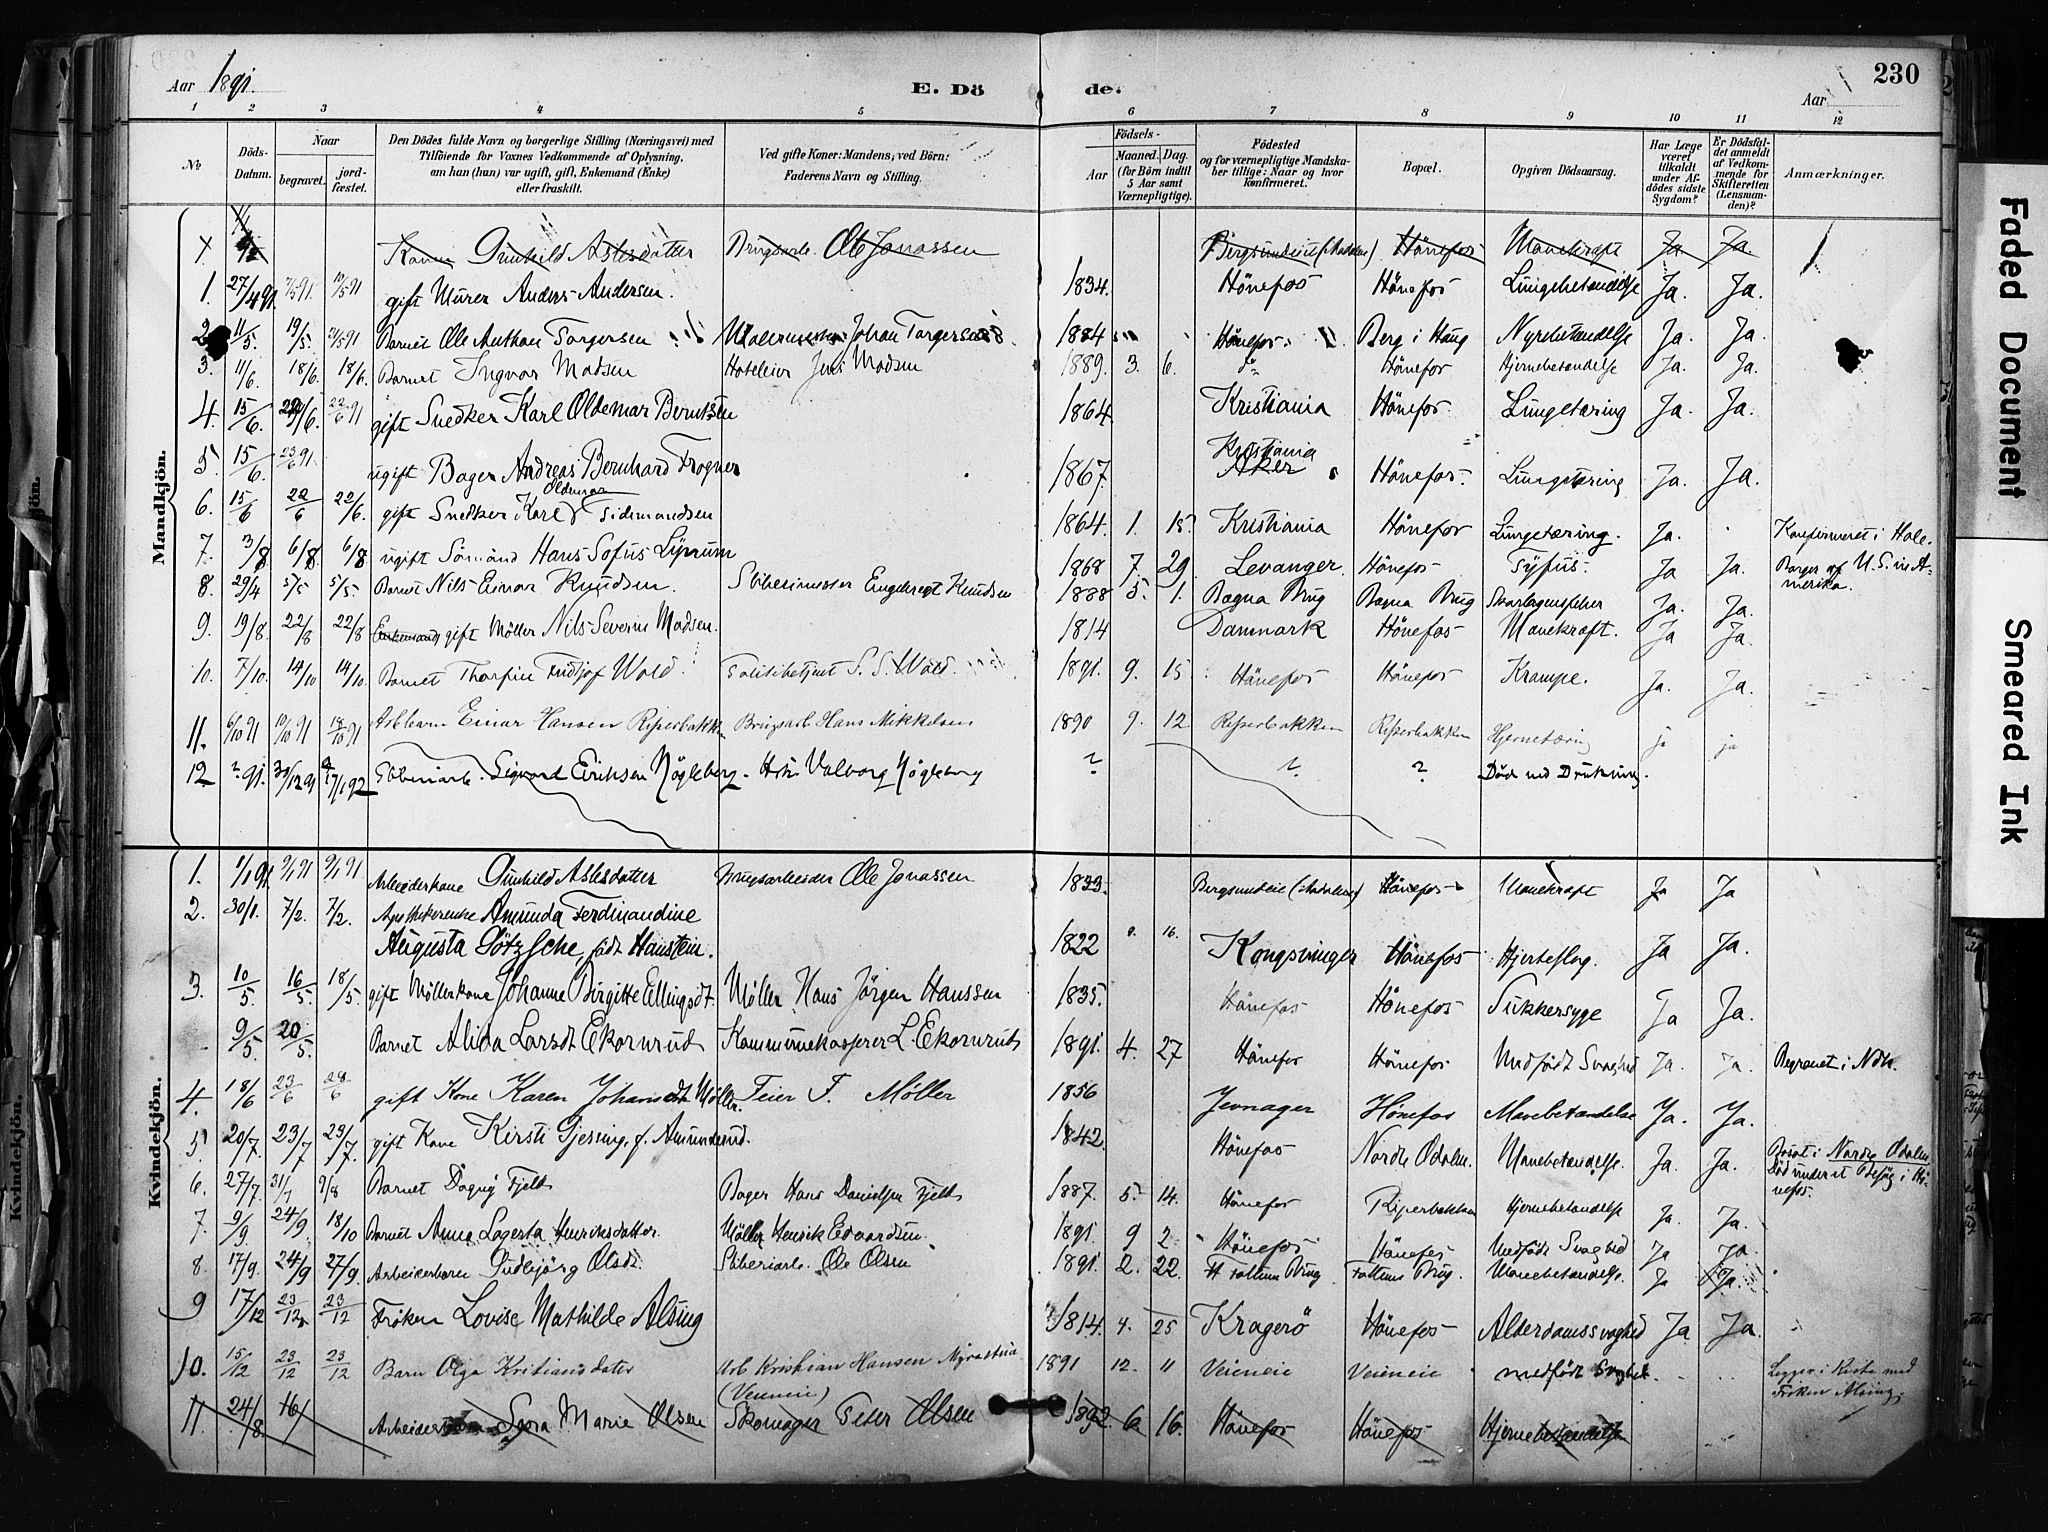 Aar 1891.
E. Dö de.
Aar
230
1 2 3 4 5 6 7 8 9 10 11 12
No
Döds-Datum.
Naar
begravet.
jord-fæstet.
Den Dödes fulde Navn og borgerlige Stilling (Næringsvei) med
Tilföiende for Voxnes Vedkommende af Oplysning,
om han (hun) var ugift, gift, Enkemand (Enke)
eller fraskilt.
Ved gifte Koner: Mandens, ved Börn:
Faderens Navn og Stilling.
Födsels-
Aar
Maaned. Dag.
(for Börn indtil
5 Aar samt
Værnepligtige).
Födested
og for værnepligtige Mandska-
ber tillige: Naar og hvor
konfirmeret.
Bopæl.
Opgiven Dödsaarsag.
Har Læge
været
tilkaldt
under Af-
dödes sidste
Sygdom?
Er Dödsfal-
det anmeldt
af Vedkom-
mende for
Skifteretten
(Lensman-
den)?
Anmærkninger.
Mandkjön.
Gunhild Aslesdatter Brugsarb. Ole Jonassen Hönefos Mavekræft Ja Ja
1. 27/4 91. 10/5 91 gift Murer Anders Andersen. 1834. Hönefos Hönefos Lungebetændelse Ja. Ja.
2 11/5 19/5 Barnet Ole Anthon Torgersen Johan Torgersen 1884 Hönefos. Berg i Haug Nyrebetændelse Ja. Ja.
3. 11/6. 18/6. 18/6. Barnet Ingvar Madsen Hoteleier Jens Madsen 1889. 3. 6. do Hönefos Hjernebetændelse Ja. Ja.
4. 15/6. 22/6 91 gift Snedker Karl Oldemar Berntsen 1864 Kristiania Hönefos. Lungetæring Ja. Ja.
5. 15/6. 23/6 91. ugift Bager Andreas Bernhard Frogner 1867. Kristiania Aker Hönefos. Lungetæring Ja. Ja.
6. 15/6 22/6 22/6. gift Snedker Karl Oldemar 1864. 1. 15. Kristiania Hönefos Lungetæring. Ja.
7. 3/8 6/8 6/8 ugift Sömand Hans Sofus 1868 7. 29. Levanger. Hönefos Tyfus. Ja Ja. Konfirmeret i Hole. Borger af U.S. in A-
merika.
8. 29/4 5/5 5/5. Barnet Nils Einar Knudsen. Engebregt Knudsen 1888 5. 1. Bægna Brug Bægna Brug Skarlagensfeber Ja. Ja.
9. 19/8. 22/8 22/8 Enkemand gift Möller Nils Severin Madsen. 1814 Danmark Hönefos Mavekræft. Ja Ja.
10. 7/10. 14/10 14/10. Barnet Thorfin Fridtjof Wold. Politibetjent S. S. Wold. 1891. 9. 15 Hönefos Hönefos Krampe. Ja. Ja.
11. 6/10 91 10/10 91 18/10 91 Arbbarn Einar Hansen Riperbakken Brugsarb Hans Mikkelsen 1890 9. 12 Ripserbakken Ripserbakken Hjernetæring ja ja
12 ? 91. 30/12 91 17/1 92 Sliberiarb. Sigvard Eriksen Nögleberg. Valborg Nögleberg ? ? ? Död ved Drukning.
Kvindekjön.
1. 1/1 91. 9/1 91 9/1 91 Arbeiderkone Gunhild Aslesdatter Brugsarbeider Ole Jonassen 1833. Hönefos Mavekræft Ja Ja
2. 30/1. 7/2. 7/2. Amunda Ferdinandine
Augusta Götzsche, födt Hanstein. 1822 16. Kongsvinger Hönefos Hjerteslag. Ja Ja.
3. 10/5. 16/5. 18/5. gift Möllerkone Johanne Birgitte Ellingsdt. Möller Hans Jörgen Hanssen 1835. Hönefos Hönefos Sukkersyge Ja Ja.
9/5. 20/5. Barnet Alida Larsdt Ekornrud Kommunekasserer L. Ekornrud 1891. 4. 27 Hönefos Hönefos Medfödt Svaghed Ja. Ja. Begravet i Ndh.
4. 18/6 23/6 28/6 gift Kone Karen Johansdt Møller. Feier F. Møller 1856 Jevnager Hönefos Mavebetændelse Ja. Ja.
5. 20/7 23/7 23/7. gift Kone Kirsti Gjessing, f. Amundsrud. 1842 Hönefos Nordre Odalen. Mavebetændelse. Ja. Ja. Bosat i Nordre Odalen
Död under et Besög i Hö-
nefos.
6. 27/7. 31/7 9/8 Barnet Dagny Fjeld Bager Hans Danielsen Fjeld 1887. 5. 14. Hönefos Ripserbakken Hjernebetændelse Ja. Ja.
7. 9/9. 24/9. 18/10 Barnet Anna Lagerta Henriksdatter. Möller Henrik Edvardsen. 1891. 9 2 Hönefos. Hönefos Medfödt Svaghed Ja Ja.
8. 17/9. 24/9 27/9. Arbeiderbarn Gudbjörg Olsdt. Sliberiarb. Ole Olsen 1891. 2. 22. Follum Brug Follum Brug. Mavebetændelse. Ja Ja.
9 17/12 23/12 23/12 Fröken Lovise Mathilde Alsing 1814. 4. 25 Kragerö Hönefos Alderdomssvaghed Ja Ja.
10. 15/12 23/12 23/12 Barn Olga Kristiansdatter Arb Kristian Hansen
(Veieneie) 1891 12. 11 Veieneie Veieneie medfödt Svaghed Ligger i Kiste med
Fröken Alsing.
11. 24/8 16/ Marie Olsen Skomager Peter Olsen 1892. 6 16. Hönefos Hönefos Hjernebetændelse
Faded Document
Smeared Ink